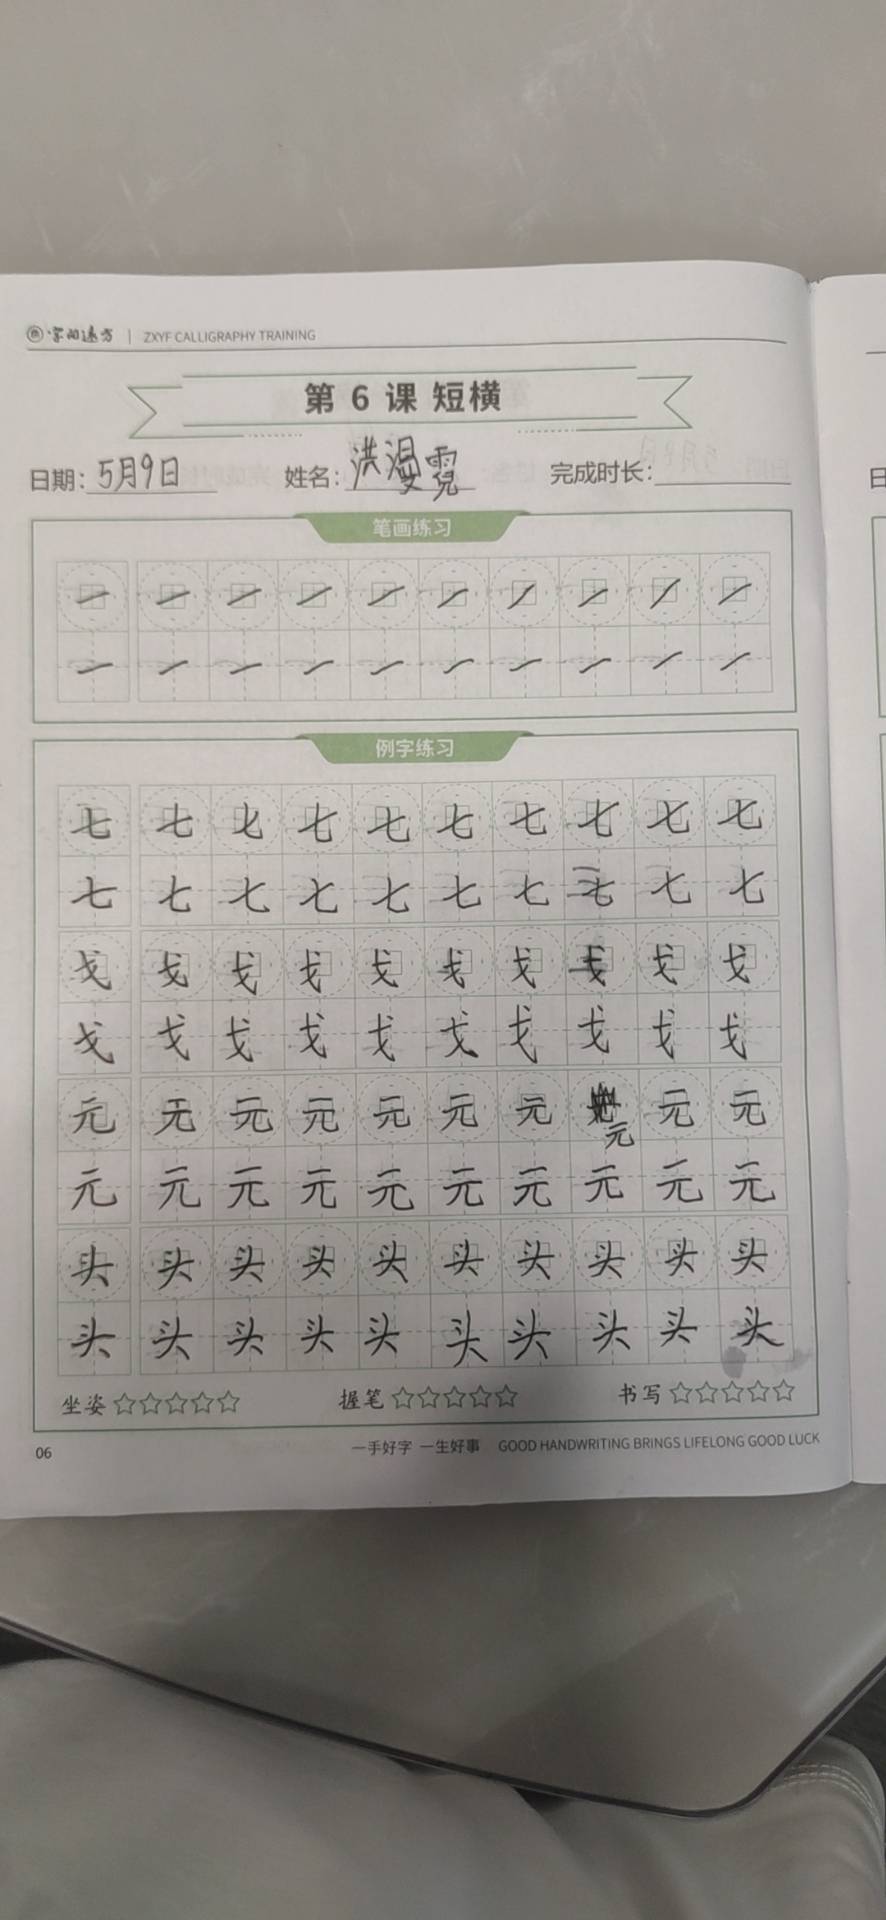 字阅远方 | ZXYF CALLIGRAPHY TRAINING
第 6 课 短横
日期：5月9日 姓名：洪漫霓 完成时长：
笔画练习
例字练习
七 七 七 七 七 七 七 七 七 七
七 七 七 七 七 七 七 七 七 七
戈 戈 戈 戈 戈 戈 戈 戈 戈 戈
戈 戈 戈 戈 戈 戈 戈 戈 戈 戈
元 元 元 元 元 元 元 元 元 元
元 元 元 元 元 元 元 元 元 元
头 头 头 头 头 头 头 头 头 头
头 头 头 头 头 头 头 头 头 头
坐姿☆☆☆☆☆ 握笔☆☆☆☆☆ 书写☆☆☆☆☆
06 一手好字 一生好事 GOOD HANDWRITING BRINGS LIFELONG GOOD LUCK